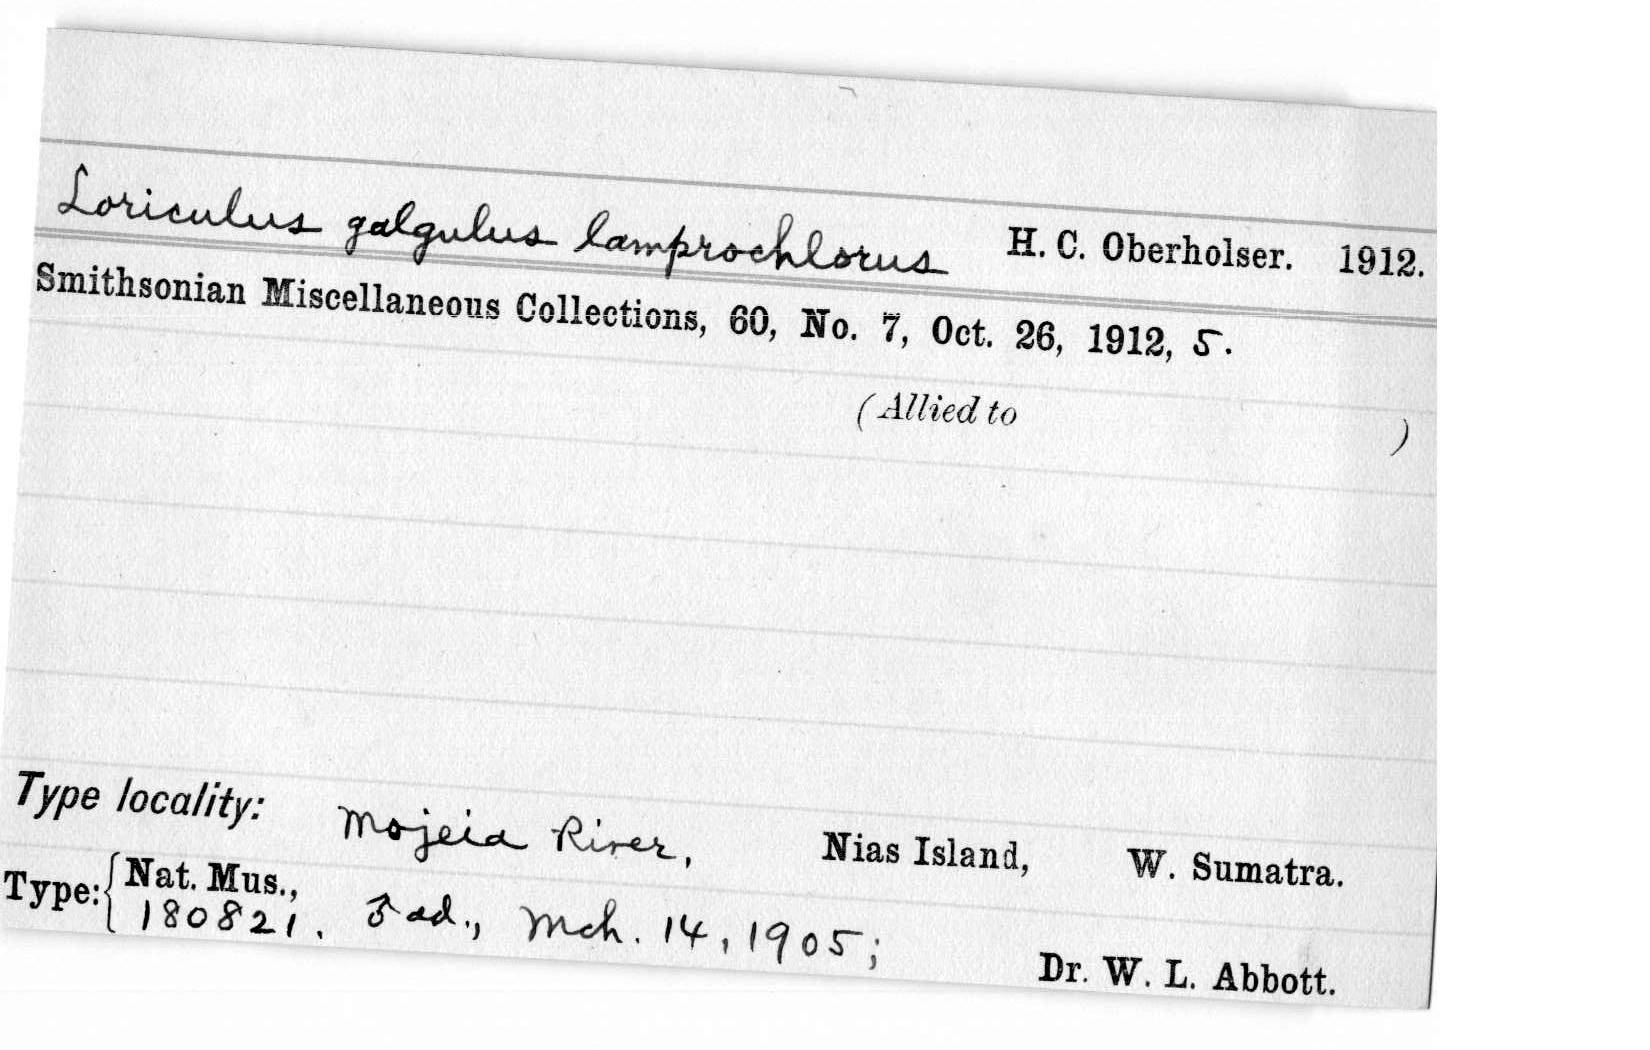 Loriculus galgulus lamprochlorus H. C. Oberholser. 1912.
Smithsonian Miscellaneous Collections, 60, No. 7, Oct. 26, 1912, 5.
(Allied to )
Type locality: Mojeia River, Nias Island, W. Sumatra.
Type: { Nat. Mus.,
180821. ♂ ad., Mch. 14, 1905; Dr. W. L. Abbott.